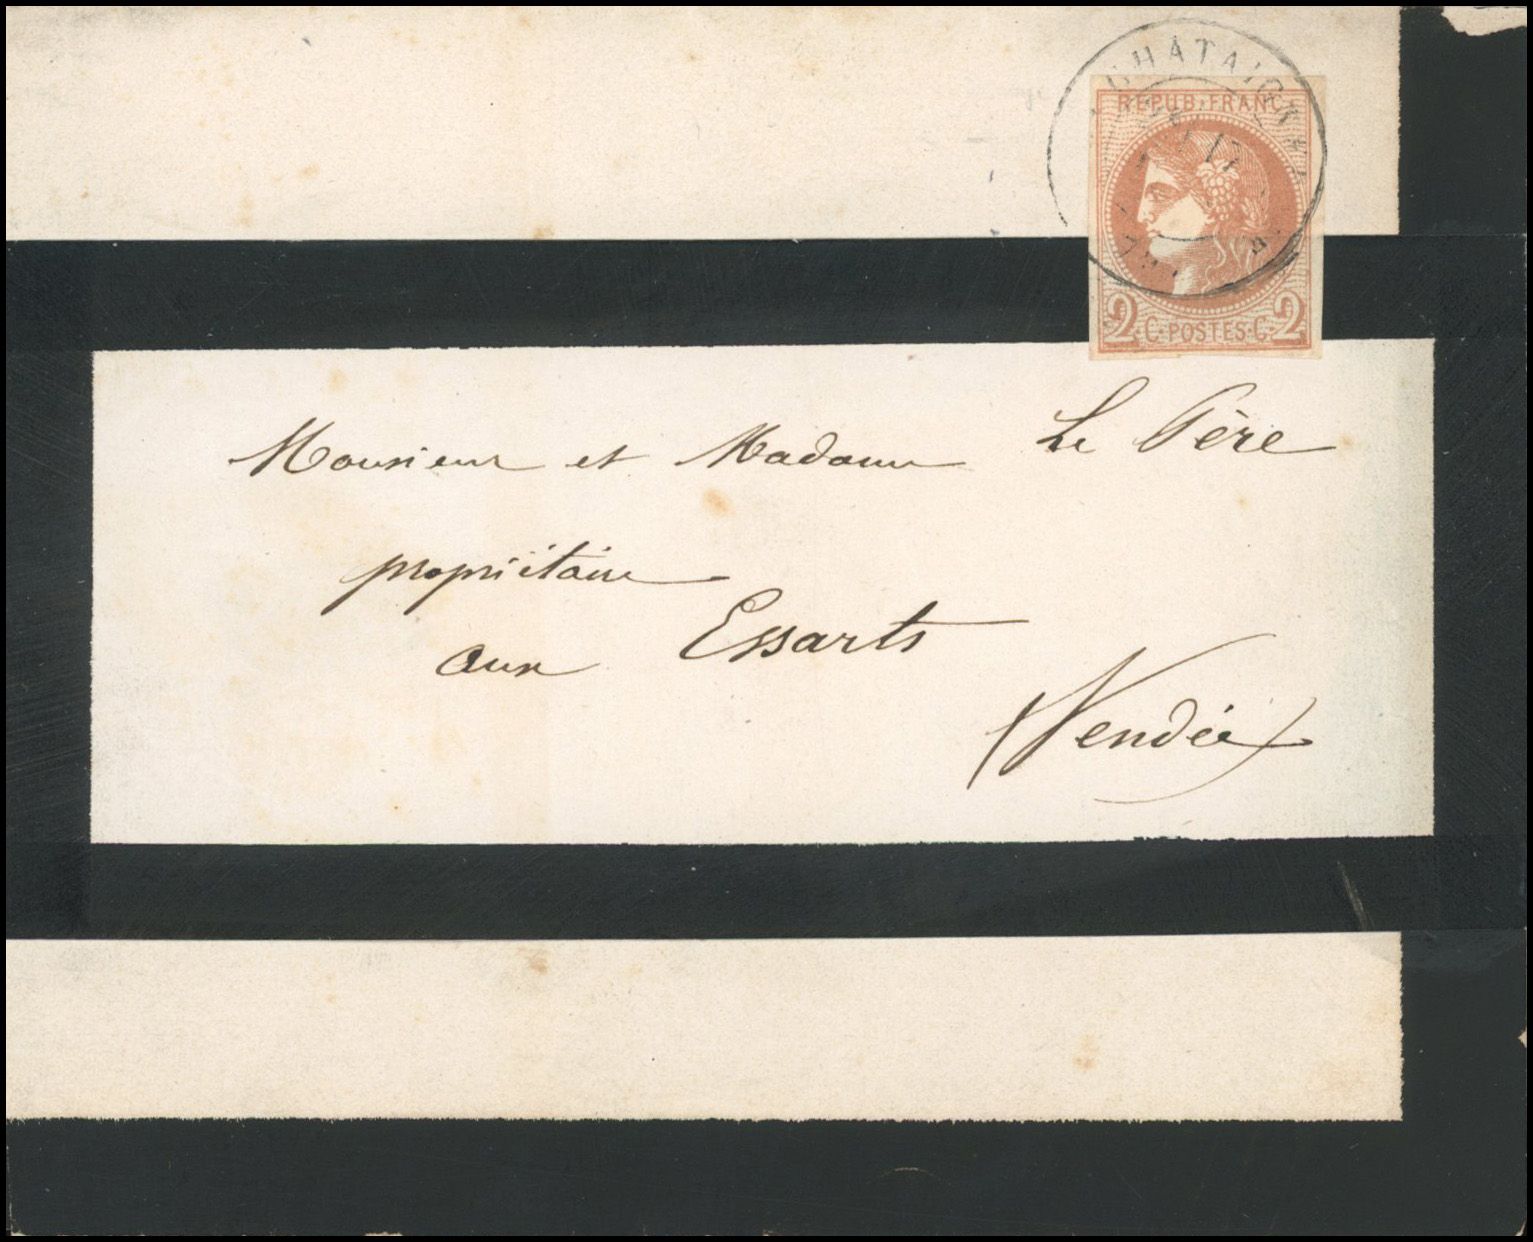 CHÂTAIGN
REPUB·FRANC
17
2 C·POSTES·C 2
Monsieur et Madame Le Père
propriétaire
aux Essarts
(Vendée)